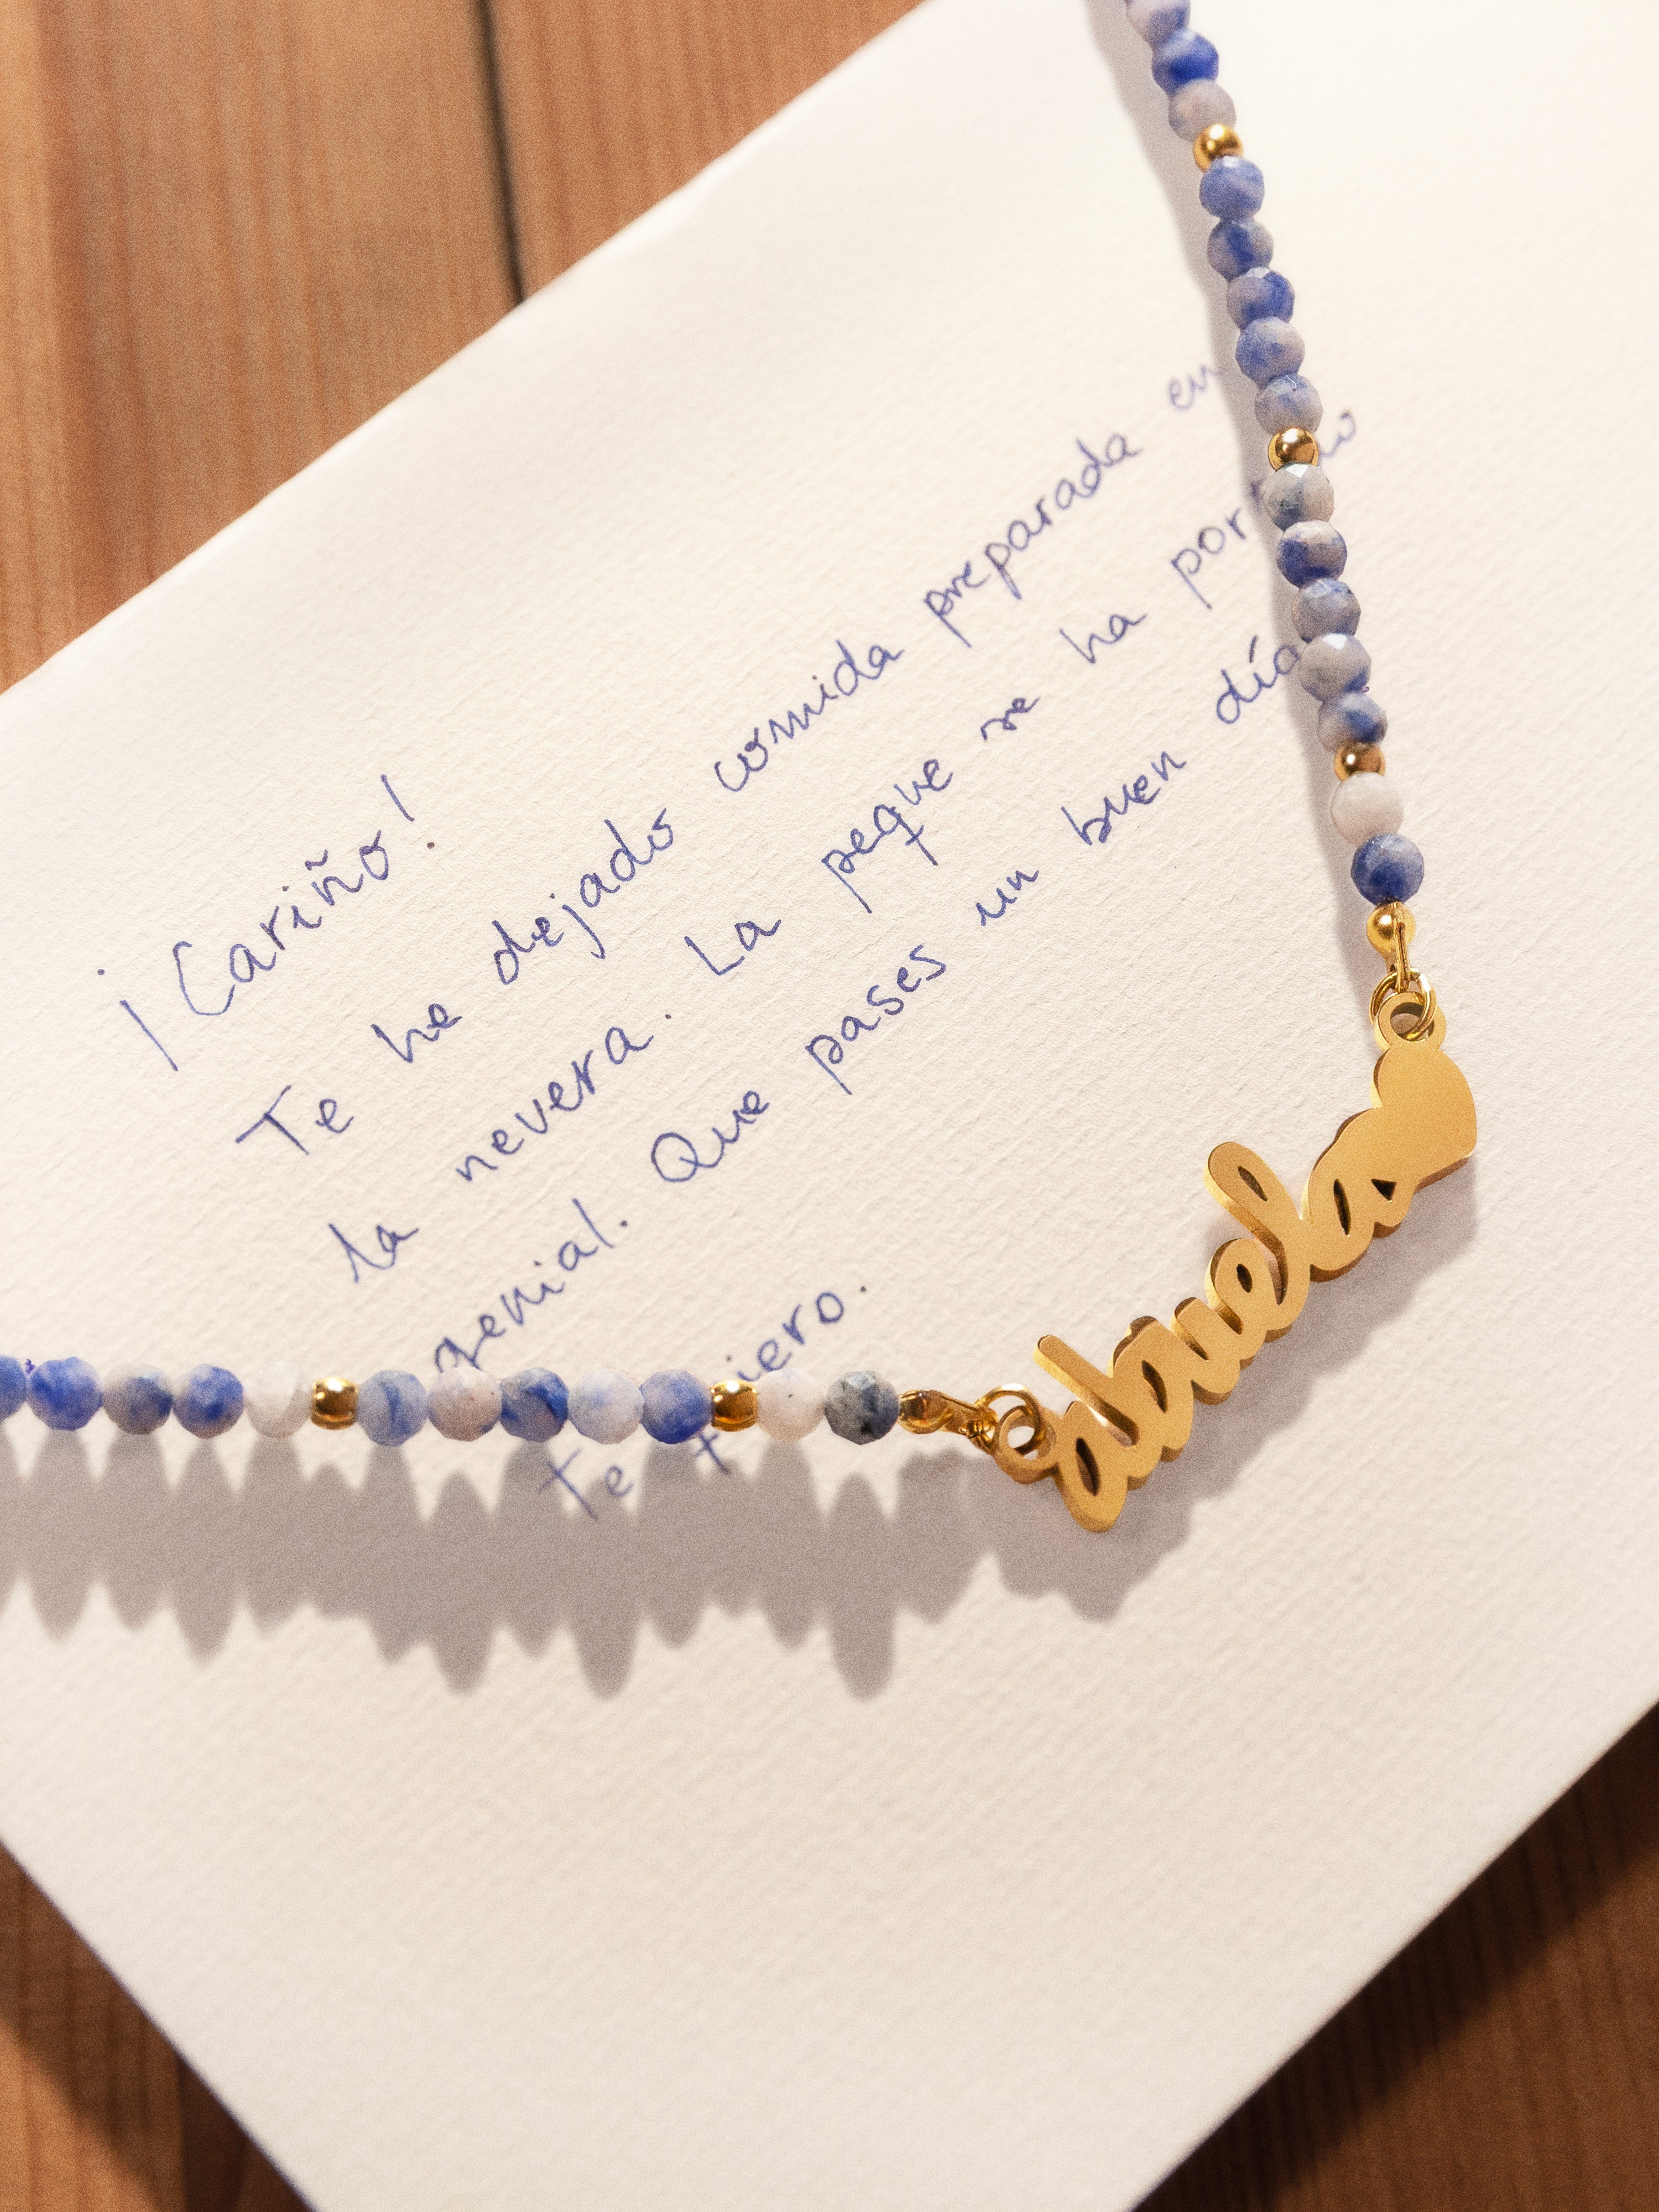 ¡Cariño!
Te he dejado comida preparada en
la nevera. La peque se ha portado
genial. Que pases un buen día.
Te quiero.
abuela